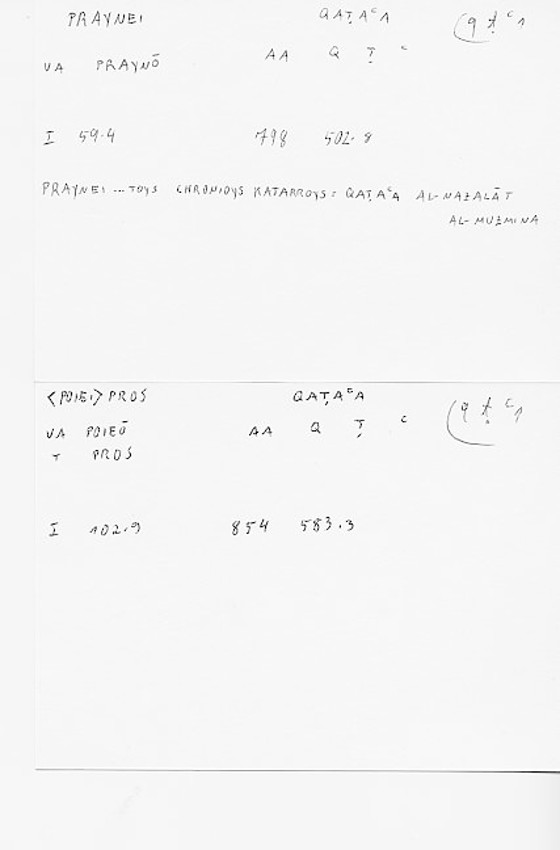 PRAYNEI QAṬAʿA q ṭ ʿ 1
VA PRAYNŌ AA Q Ṭ ʿ
I 59.4 798 502.8
PRAYNEI ... TOYS CHRONIOYS KATARROYS : QAṬAʿA AL-NAZALĀT
AL-MUZMINA
<POIEI> PROS QAṬAʿA q ṭ ʿ 1
VA POIEŌ AA Q Ṭ ʿ
T PROS
I 102.9 854 583.3